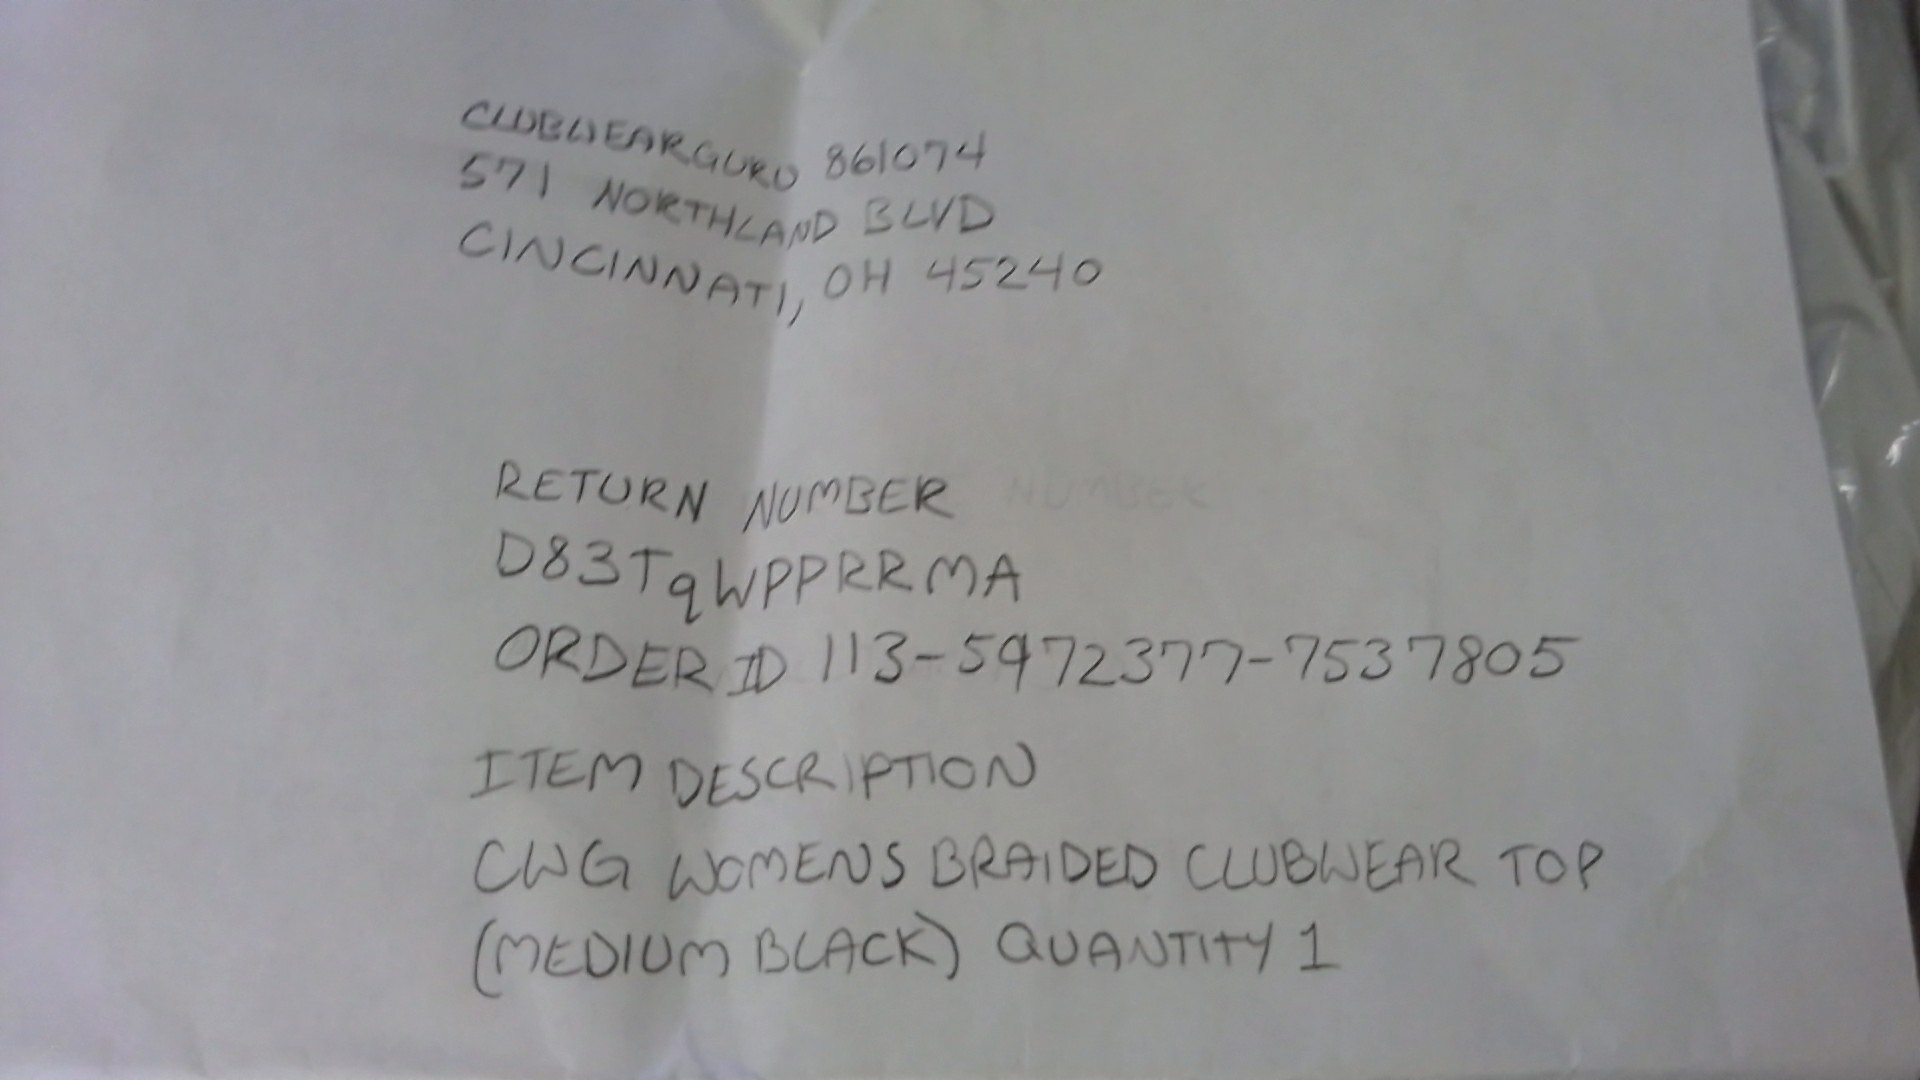 CLUBWEARGURU 861074
571 NORTHLAND BLVD
CINCINNATI, OH 45240
RETURN NUMBER NUMBER
D83TqWPPRRMA
ORDER ID 113-5972377-7537805
ITEM DESCRIPTION
CWG WOMENS BRAIDED CLUBWEAR TOP
(MEDIUM BLACK) QUANTITY 1